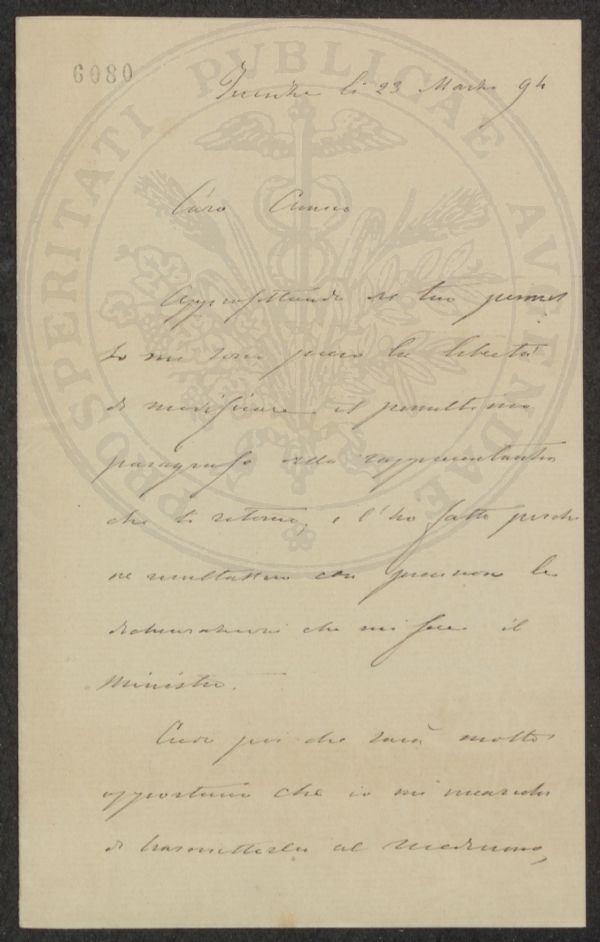 6080
PROSPERITATI PUBLICAE AUGENDAE
Firenze li 23 Marzo 94
Caro
Approfittando del tuo permes
so mi sono preso la libertà
di modificare il penultimo
paragrafo della rappresentanza
che ti ritorno, e l'ho fatto perchè
ne risultassero con precisione le
dichiarazioni che mi fece il
Ministro.
Credo poi che sarà molto
opportuno che io mi incarichi
di trasmetterla al medesimo,